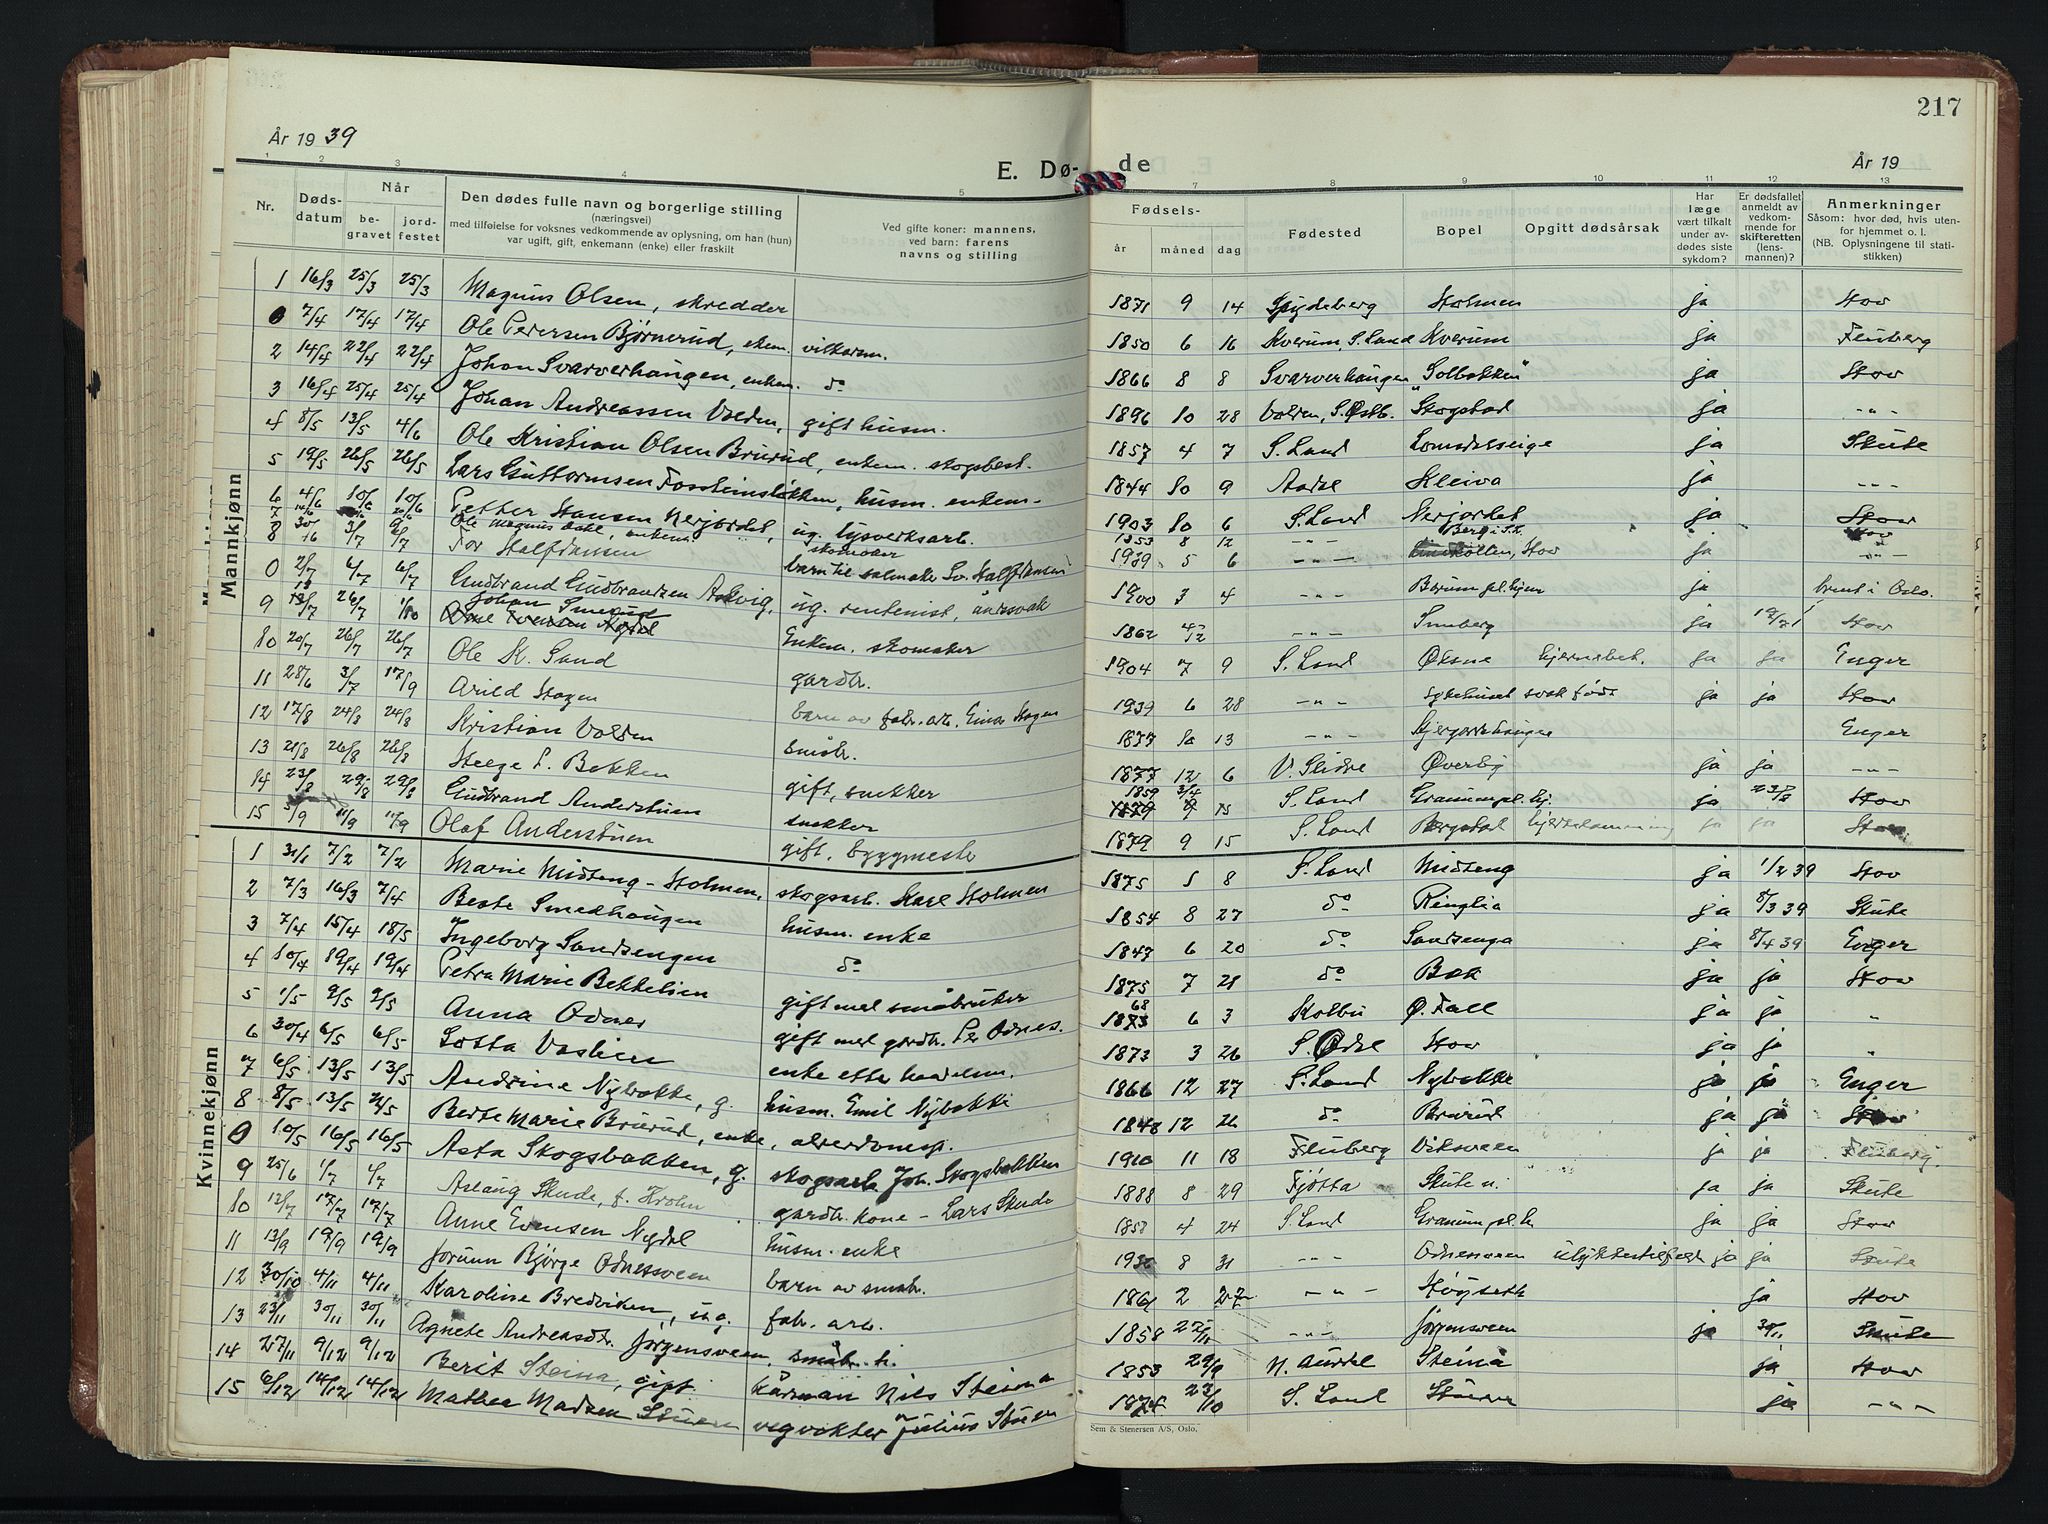 217
År 1939
E. Dø-
de
År 19
1 2 3 4 5 7 8 9 10 11 12 13
Nr.
Døds-
datum
Når
be-
gravet
jord-
festet
Den dødes fulle navn og borgerlige stilling
(næringsvei)
med tilføielse for voksnes vedkommende av oplysning, om han (hun)
var ugift, gift, enkemann (enke) eller fraskilt
Ved gifte koner: mannens,
ved barn: farens
navns og stilling
Fødsels-
år måned dag
Fødested
Bopel
Opgitt dødsårsak
Har
læge
vært tilkalt
under av-
dødes siste
sykdom?
Er dødsfallet
anmeldt av
vedkom-
mende for
skifteretten
(lens-
mannen)?
Anmerkninger
Såsom: hvor død, hvis uten-
for hjemmet o. l.
(NB. Oplysningene til stati-
stikken)
Mannkjønn
1 16/3 25/3 25/3 Magnus Olsen, skredder 1871 9 14 Spydeberg Holmen ja Hov
0 7/4 17/4 17/4 Ole Petersen Bjørnerud, ekem. vilkorm. 1850 6 16 Kverum, S. Land Kverum ja Fluberg
2 14/4 22/4 22/4 Johan Svarverhaugen, enkem. do 1866 8 8 Svarverhaugen "Solbakken" ja Hov
3 16/4 25/4 25/4 Johan Andreassen Volden, gift husm. 1896 10 28 Volden, S. Østb. Skogstad ja -"-
4 8/5 13/5 4/6 Ole Kristian Olsen Brurud, enkem. skogsbest. 1857 4 7 S. Land Lomsdalseige ja Skute
5 19/5 26/5 26/5 Lars Guttormsen Fossheimsløkken, husm. enkem. 1844 10 9 Aadal Kleiva ja -"-
6 4/6 10/6 10/6 Petter Hansen Nerjordet, ug. lysverksarb. 1903 10 6 S. Land Nerjordet ja Hov
7 Ole Magnus Dahl, enkem. skomaker 1853 8 12 -"- Berg i S.L. Hov
8 30/6 3/7 9/7 Tor Halfdansen barn til salmaker Sv. Halfdansen 1939 5 6 -"- Hov ja -"-
0 2/7 6/7 6/7 Gudbrand Gudbrandsen Askvig, ug. rentenist, åndsvak 1900 3 4 -"- ja brent i Oslo.
9 13/7 26/7 1/10 Johan Smerud Enkem. skomaker 1862 4/12 -"- Smeberg ja 19/7 Hov
10 20/7 26/7 26/7 Ole K. Sand gardbr. 1904 7 9 S. Land Øksne hjernebet. ja ja Enger
11 28/6 3/7 17/9 Arild Hagen barn av fabr. arb. Einar Hagen 1939 6 28 -"- sykehuset svak født ja ja Hov
12 17/8 24/8 24/8 Kristian Volden småbr. 1877 10 13 -"- Enger
13 21/8 26/8 26/8 Helge L. Bakken gift, snekker 1877 12 6 V. Slidre Øverby ja ja -"-
14 23/8 29/8 29/8 Gudbrand Anderstuen snekker 1859 3/4 S. Land Granum pl. hj. ja 23/8 Hov
15 5/9 11/9 11/9 Olaf Anderstuen gift, byggmester 1879 9 15 S. Land Bergstad hjertelamning ja ja Hov
Kvinnekjønn
1 31/1 7/2 7/2 Marie Midteng-Holmen, skogsarb. Karl Holmen 1875 1 8 S. Land Midteng ja 1/2 39 Hov
2 7/3 16/3 7/4 Beate Smedhaugen husm. enke 1854 8 27 do Ringlia ja 8/3 39 Skute
3 7/4 15/4 18/5 Ingeborg Sandsengen do 1847 6 20 do Sandsenga ja 8/4 39 Enger
4 10/4 19/4 19/4 Petra Marie Bekkelien gift med småbruker 1875 7 21 do Bak ja ja Hov
5 1/5 9/5 9/5 Anna Odnes gift med gardbr. Pr Odnes. 1873 68 6 3 Kolbu Ø. Fall ja ja "
6 30/4 6/5 6/5 Lotta Vaslien enke etter handelsm. 1873 3 26 S. Odal Hov ja ja "
7 6/5 13/5 13/5 Andrine Nybakke, g. husm. Emil Nybakke 1866 12 27 S. Land Nybakke ja ja Enger
8 8/5 13/5 24/5 Berte Marie Brurud, enke, alderdomsp. 1848 12 26 do Brurud ja ja Hov
0 10/5 16/5 16/5 Asta Skogsbakken, g. skogsarb. Joh. Skogsbakken 1910 11 18 Fluberg Viksveen ja ja Fluberg.
9 25/6 1/7 4/7 Aslaug Skude, f. Krohn gardbr. kone - Lars Skude 1888 8 29 Tjøtta Skute n. ja ja Skute
10 12/7 17/7 17/7 Anne Evensen Nydal husm. enke 1857 4 24 S. Land Granum pl. h. ja ja Hov
11 13/9 19/9 19/9 Jorunn Bjørge Odnessveen barn av småbr. 1936 8 31 -"- Odnessveen ulykkestilfeld ja ja Skute
12 30/10 4/11 4/11 Karoline Bredviken, ug. fabr. arb. 1861 2 27 -"- Høyseth ja Hov
13 23/11 30/11 30/11 Agnete Andreasdtr. Jørgensveen, småbr. h. 1858 25/11 -"- Jørgensveen ja 30/11 Skute
14 27/11 9/12 9/12 Berit Steina, gift kårman Nils Steina 1853 29/9 N. Aurdal Steina ja Hov
15 6/12 14/12 14/12 Mathea Madsen Stuen vegvokter Julius Stuen 1874 23/10 S. Land Stuen ja -"-
Sem & Stenersen A/S, Oslo.